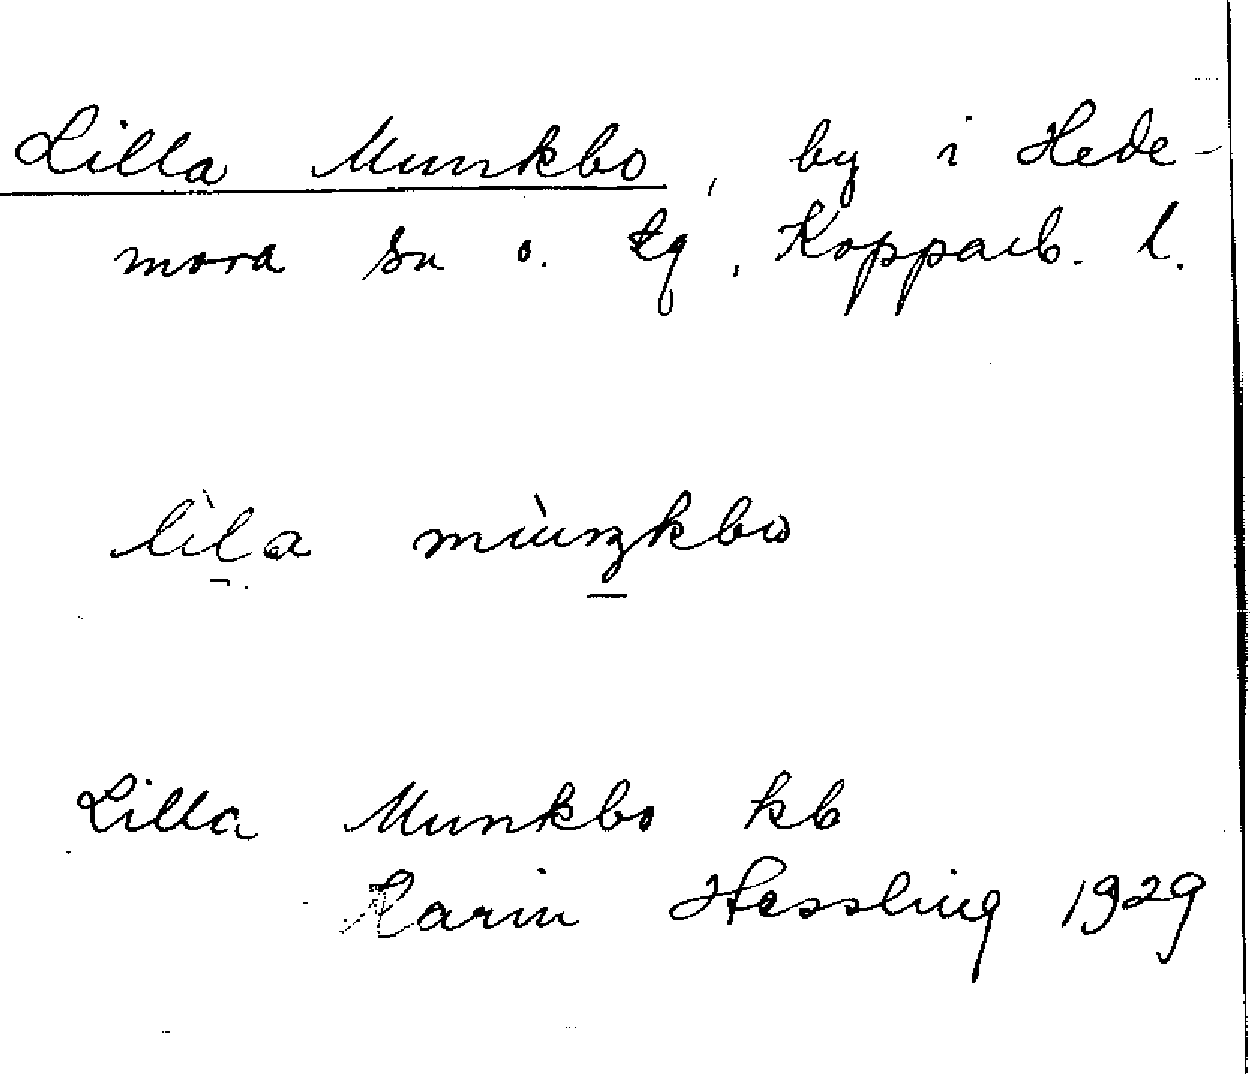 Lilla Munkbo, by i Hede-
mora sn o. tg, Kopparb. l.
lìla mùŋkbω
Lilla Munkbo kb
Karin Hessling 1929